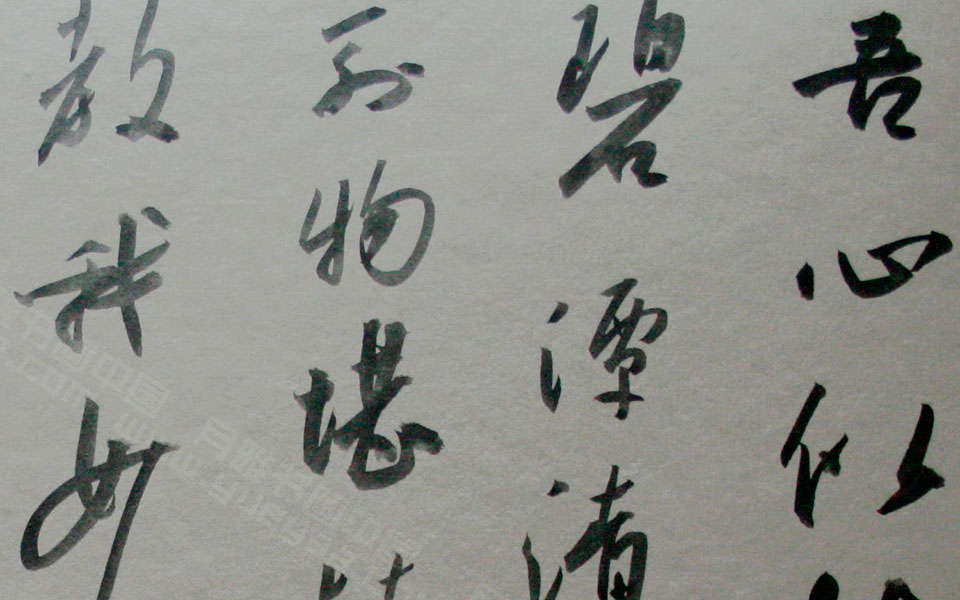 吾心似
碧潭清
无物堪
教我如